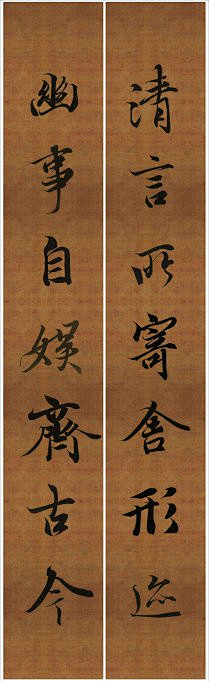 清言所寄舍形迹
幽事自娱齋古今